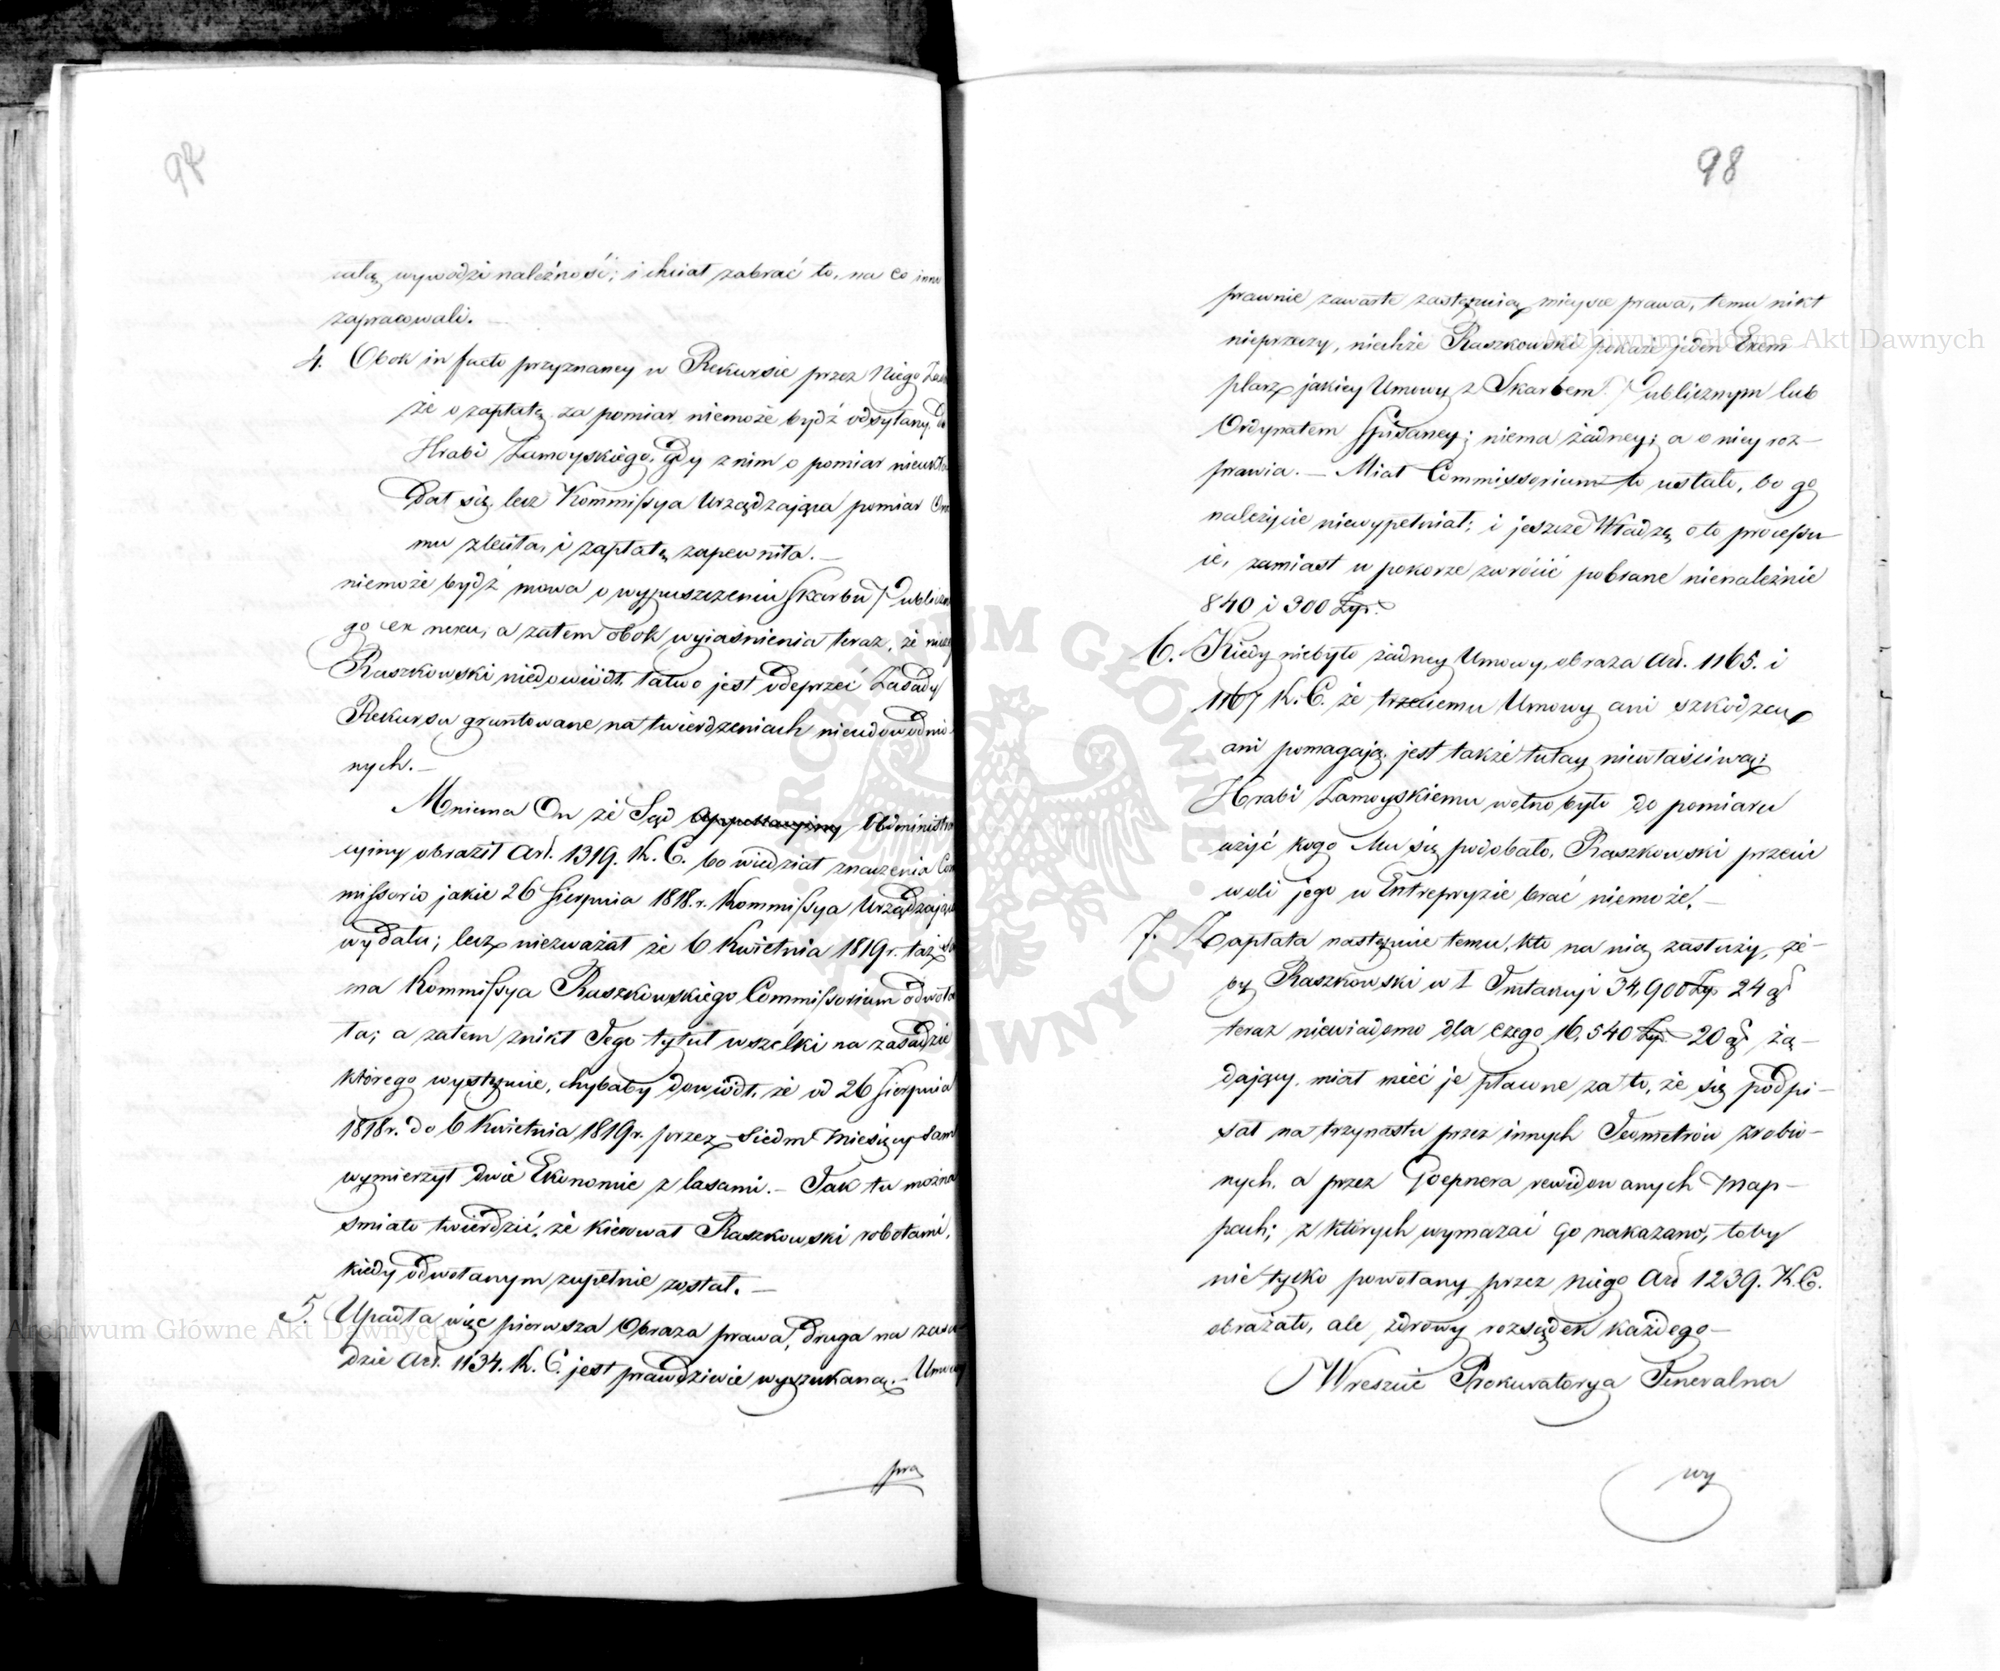 97
całą wywodzi należność; i chciał zabrać to, na co inni
zapracowali.
4. Obok in facto przyznaney w Rekursie przez Niego
że o zapłatę za pomiar niemoże bydź odsyłany do
Hrabi Zamoyskiego, gdy z nim o pomiar nieukła
dał się, lecz Kommissya Urządzająca pomiar
mu zleciła, i zapłatę zapewniła. —
niemoże bydź mowa o wypuszczeniu Skarbu Publiczne
go ex nexu, a zatem obok wyiaśnienia teraz, że
Raszkowski niedowiódł, łatwo jest odeprzeć Zasady
Rekursu gruntowane na twierdzeniach nieudowodnio
nych. —
Mniema On że Sąd Appellacyjny Administra
cyjny obraził Art. 1319. K. C. bo wiedział znaczenia Com
missorio jakie 26 Sierpnia 1818. r. Kommissya Urządzająca
wydała; lecz niezważał że 6 Kwietnia 1819 r. taż sa
ma Kommissya Raszkowskiego Commissorium odwoła
ła; a zatem znikł Jego tytuł wszelki na zasadzie
którego występuie, chybaby dowiódł, że od 26 Sierpnia
1818 r. do 6 Kwietnia 1819 r. przez siedm Miesięcy sam
wymierzył dwie Ekonomie z lasami. — Tak tu można
smiało twierdzić, że kierował Raszkowski robotami,
kiedy odwołanym zupełnie został. —
5. Upadła więc pierwsza Obraza prawa, druga na zasa
dzie Art. 1134. K. C. jest prawdziwie wyszukaną. — Umowy
pra
98
prawnie zawarte zastępuią mieysce prawa, temu nikt
nieprzeczy, niechże Raszkowski pokaże jeden Exem
plarz jakiey Umowy z Skarbem Publicznym lub
Ordynatem spisaney; niema żadney; a o niey roz-
prawia. — Miał Commissorium to ustało, bo go
należycie niewypełniał; i jeszcze Władzę o to processu
ie, zamiast w pokorze zwrócić pobrane nienależnie
840 i 300 Złp.
6. Kiedy niebyło żadney Umowy, obraza Art. 1165. i
1167 K. C. że trzeciemu Umowy ani szkodzą
ani pomagają, jest także tutay niewłaściwą;
Hrabi Zamoyskiemu wolno było do pomiaru
użyć kogo Mu się podobało, Raszkowski przeciw
woli jego w Entrepryzie brać niemoże. —
7. Zapłata następuie temu, kto na nią zasłuży, że-
by Raszkowski w I Instancyi 34,900 Złp 24 gr
teraz niewiadomo dla czego 16,540 Złp 20 gr żą-
dający, miał mieć je płatne za to, że się podpi-
sał na trzynastu przez innych Jeometrów zrobio-
nych, a przez Goepnera rewidowanych Map-
pach; z których wymazać go nakazano, toby
nie tylko powołany przez niego Art 1239. K. C.
obrażało, ale zdrowy rozsądek każdego —
Wreszcie Prokuratorya Jeneralna
wy
Archiwum Główne Akt Dawnych
Archiwum Główne Akt Dawnych
ARCHIWUM GŁÓWNE AKT DAWNYCH